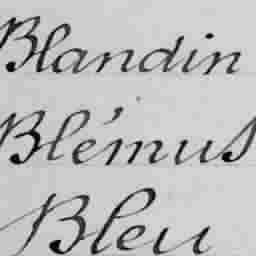 Blandin
Blémus
Bleu